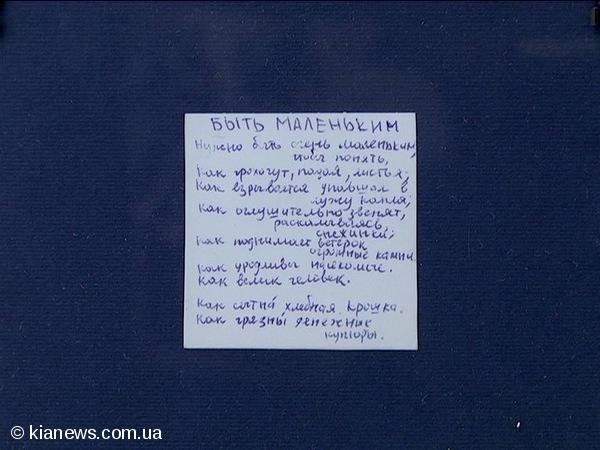 БЫТЬ МАЛЕНЬКИМ
Нужно быть очень маленьким,
чтоб понять,
Как грохочут, падая, листья;
Как взрывается упавшая в
лужу капля;
Как оглушительно звенят,
раскалываясь,
снежинки;
Как поднимает ветерок
огромные камни.
Как уродливы насекомые.
Как велик человек.
Как сытна хлебная крошка.
Как грязны денежные
купюры.
© kianews.com.ua